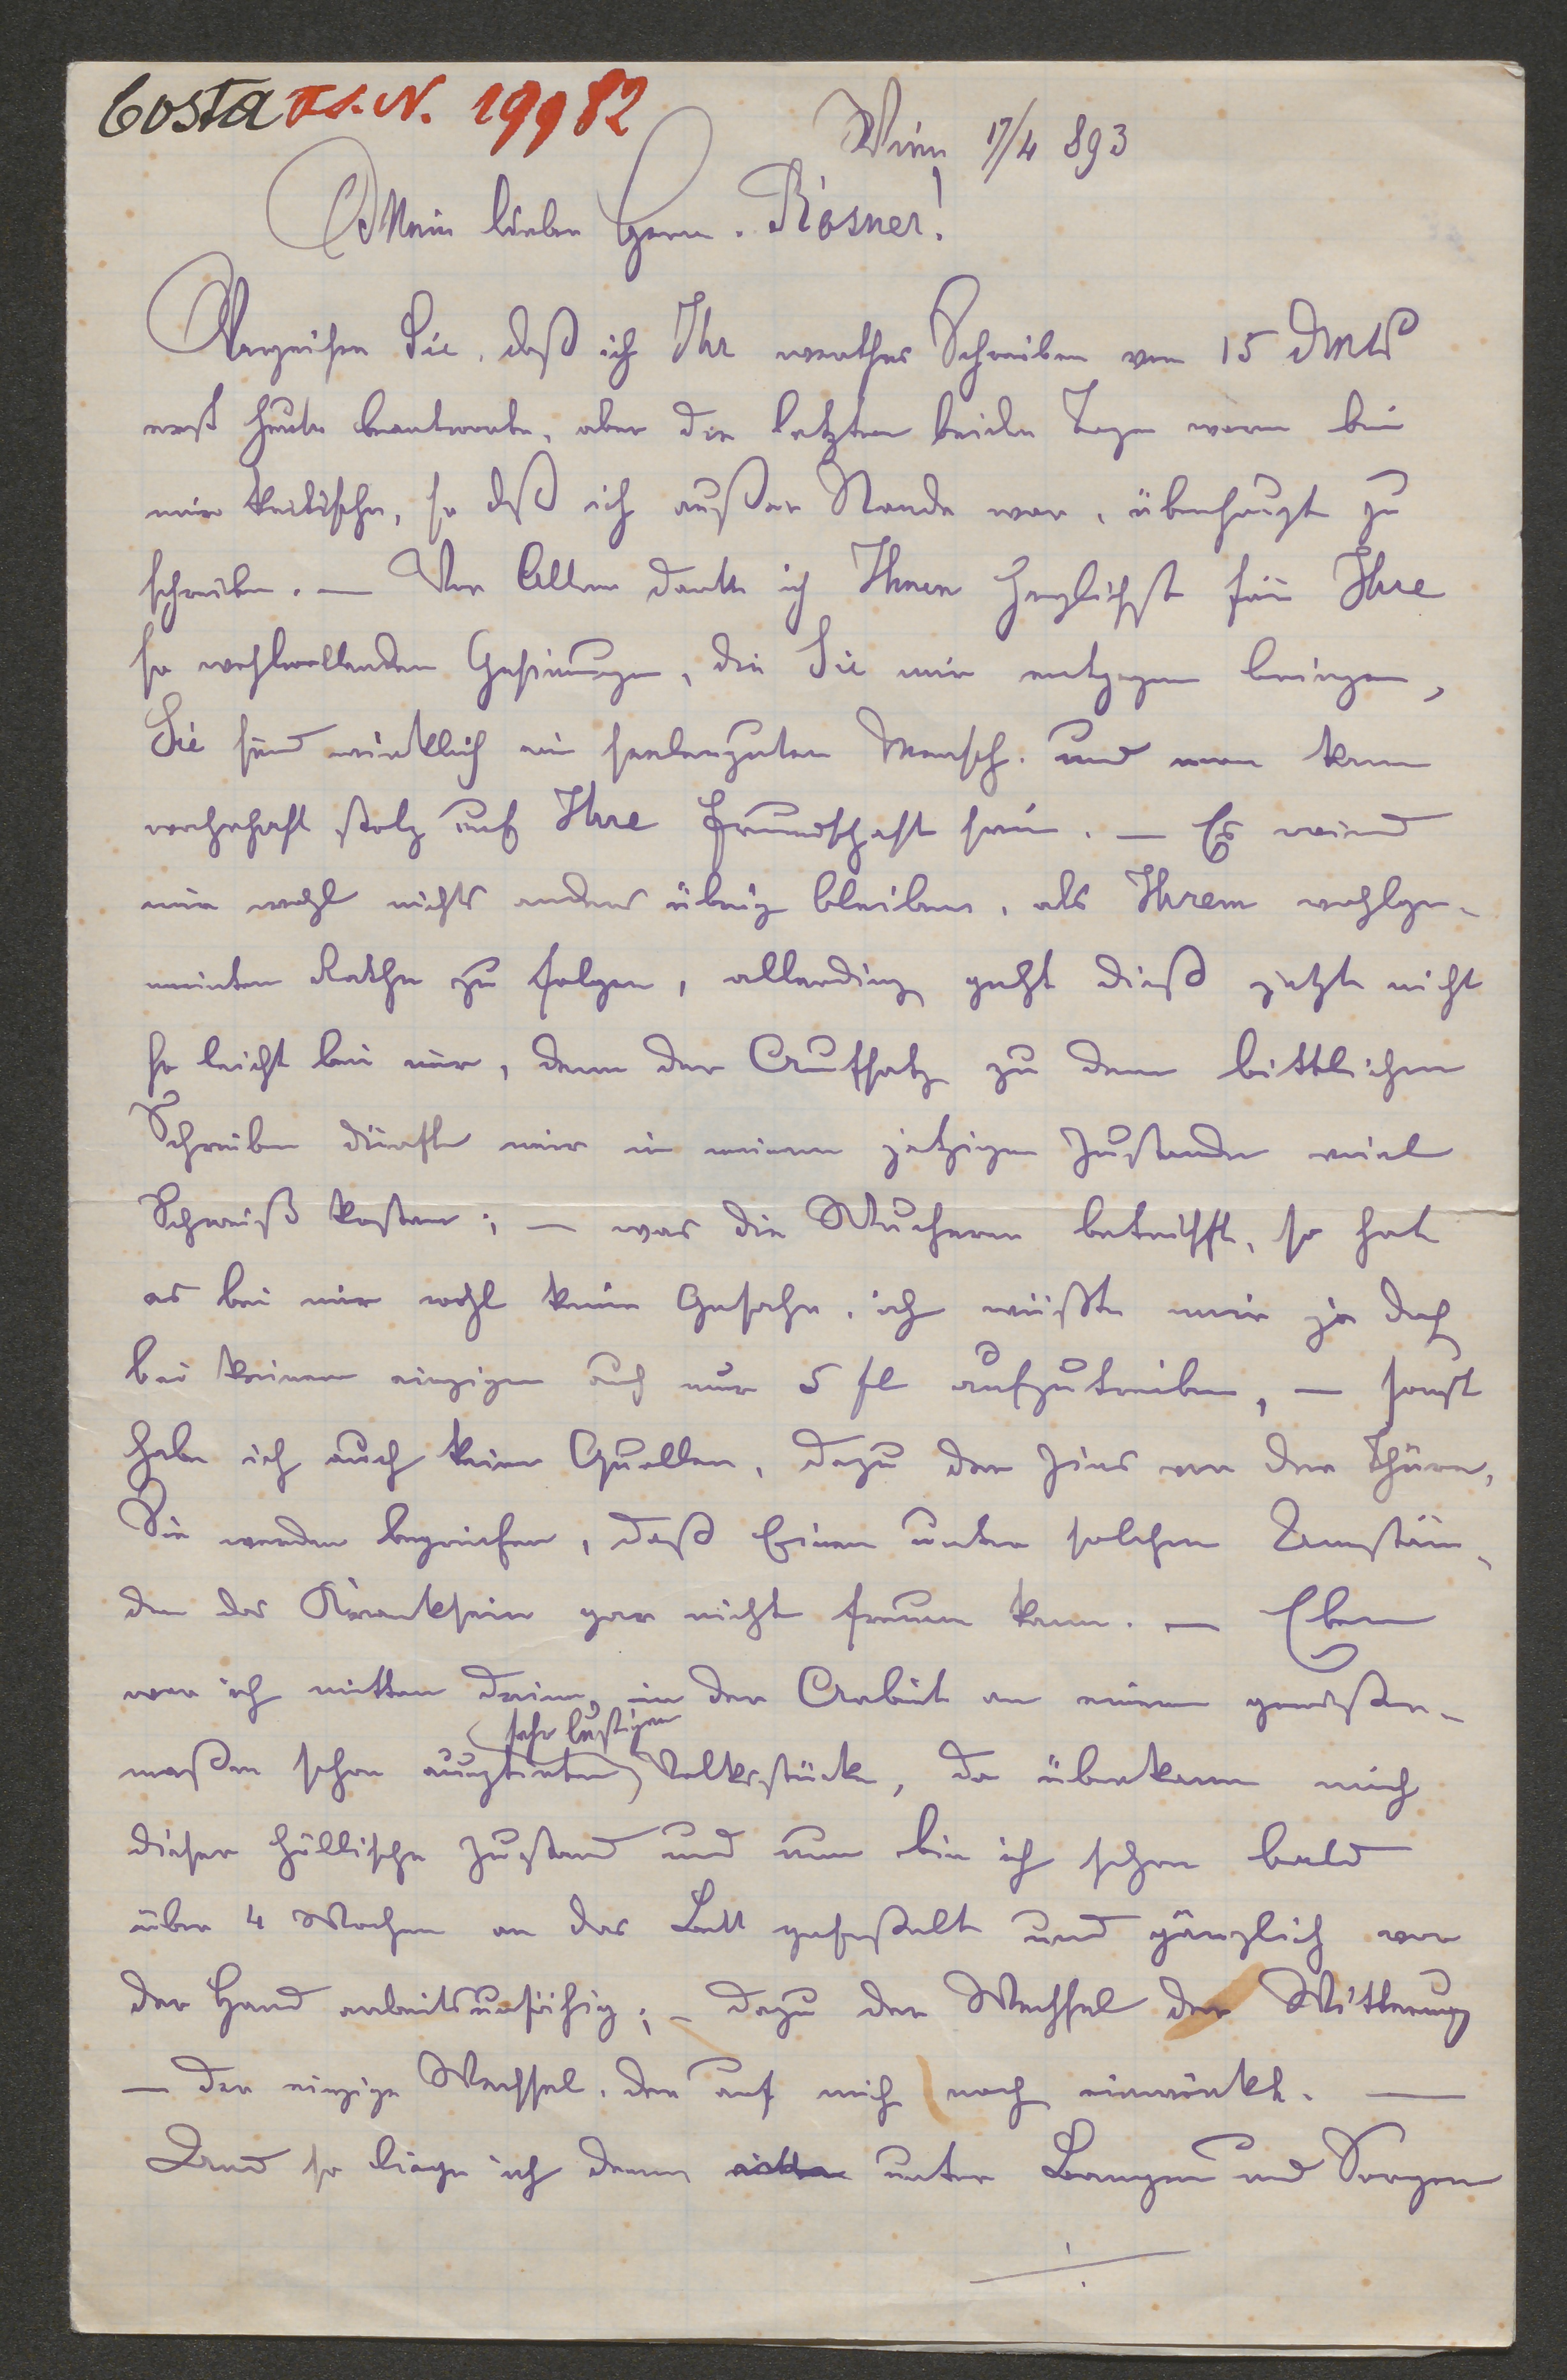 Costa I.N. 19982
Wien 17/4 893
Mein lieber Herr Rosner!
Verzeihen Sie, daß ich Ihr werthes Schreiben vom 15 dmts
erst heute beantworte, aber die letzten beiden Tage waren bei
mir kritische, so daß ich außer Stande war, überhaupt zu
schreiben. — Vor Allem danke ich Ihnen herzlichst für Ihre
so wohlwollenden Gesinnungen, die Sie mir entgegen bringen,
Sie sind wirklich ein seelenguter Mensch und man kann
wahrhaft stolz auf Ihre Freundschaft sein. — Es wird
mir wohl nichts anders übrig bleiben, als Ihrem wohlge-
meinten Rathe zu folgen, allerdings geht dieß jetzt nicht
so leicht bei mir, denn der Aufsatz zu dem bittlichen
Schreiben dürfte mir in meinem jetzigen Zustande viel
Schweiß kosten; — was die Wucherer betrifft, so hat
es bei mir wohl keine Gefahr, ich wüßte mir ja doch
bei keinem einzigen auch nur 5 fl aufzutreiben, — sonst
habe ich auch keine Quellen, dazu der Zins vor der Thüre,
Sie werden begreifen, daß Einen unter solchen Umstän-
den das Kranksein gar nicht freuen kann. — Eben
war ich mitten drinn, in der Arbeit an einem gewißer-
sehr lustigen
maßen schon Volksstücke, da überkam mich
dieser höllische Zustand und nun bin ich schon bald
über 4 Wochen an das Bett gefeßelt und gänzlich vor
der Hand arbeitsunfähig; – dazu der Wechsel der Witterung
— der einzige Wechsel, der auf mich noch einwirkt. —
Und so liege ich denn unter Bangen und Sorgen